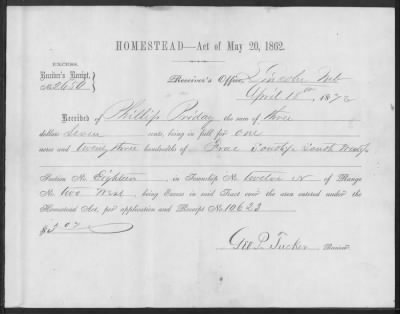 HOMESTEAD—Act of May 20, 1862.
EXCESS.
Receiver's Receipt,
No 2650
Receiver's Office, Lincoln Neb
April 18th, 1872
Received of Phillip Friday the sum of three
dollars seven cents, being in full for one
acres and twenty three hundredths of Frac South
Section No. Eighteen, in Township No. twelve N of Range
No. two West, being Excess in said Tract over the area entered under the
Homestead Act, per application and Receipt No 10623
$3 07
Geo P. Tucker Receiver